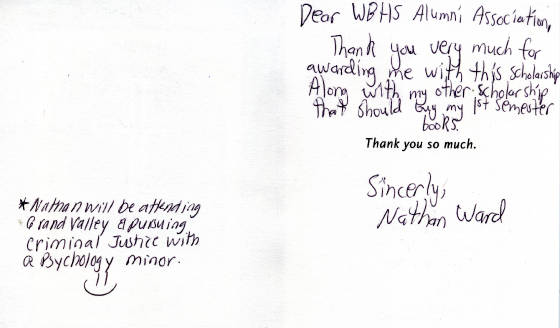 Dear WBHS Alumni Association,
Thank you very much for
awarding me with this scholarship
Along with my other scholarship
that should buy my 1st semester
books.
Thank you so much.
Sincerly,
Nathan Ward
*Nathan will be attending
Grand Valley & pursuing
Criminal Justice with
a Psychology minor.